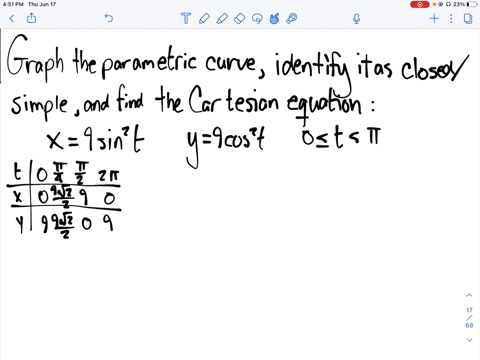 4:51 PM Thu Jun 17
23%
Graph the parametric curve, identify it as closed/
simple, and find the Cartesian equation:
x=9sin²t y=9cos²t 0≤t<π
t 0 π/4 π/2 2π
x 0 9√2/2 9 0
y 9 9√2/2 0 9
17
/
68